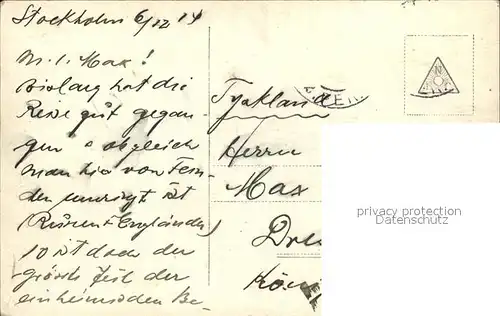 Stockholm 6/12 14
M. l. Max!
Bislang hat die
Reise gut gegan-
gen obgleich
man hier von Fein-
den umringt ist
(Russen + Engländer)
so ist doch der
grösste Teil der
einheimischen Be-
Tyskland
Herrn
Max
privacy protection
Datenschutz